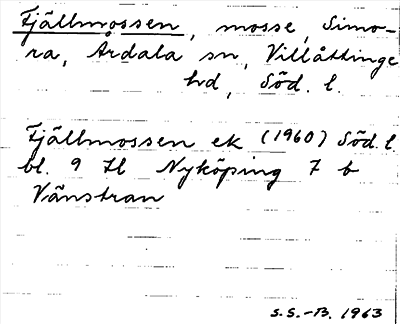 Fjällmossen, mosse, Simo-
ra, Årdala sn, Villåttinge
hd, Söd. l.
Fjällmossen ek (1960) Söd. l
bl. 9 H Nyköping 7 b
Vänstran
S.S.-B. 1963